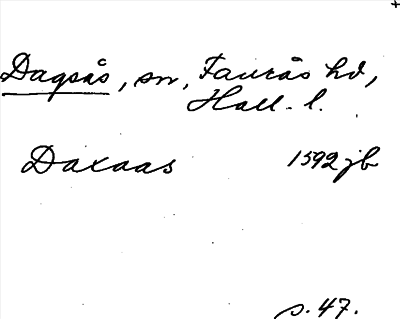 Dagsås, sn, Faurås hd,
Hall. l.
Daxaas 1592 jb
s. 47.